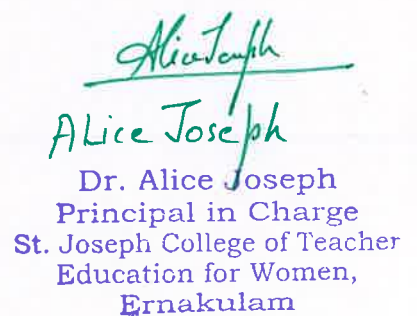 Alice Joseph
ALice Joseph
Dr. Alice Joseph
Principal in Charge
St. Joseph College of Teacher
Education for Women,
Ernakulam